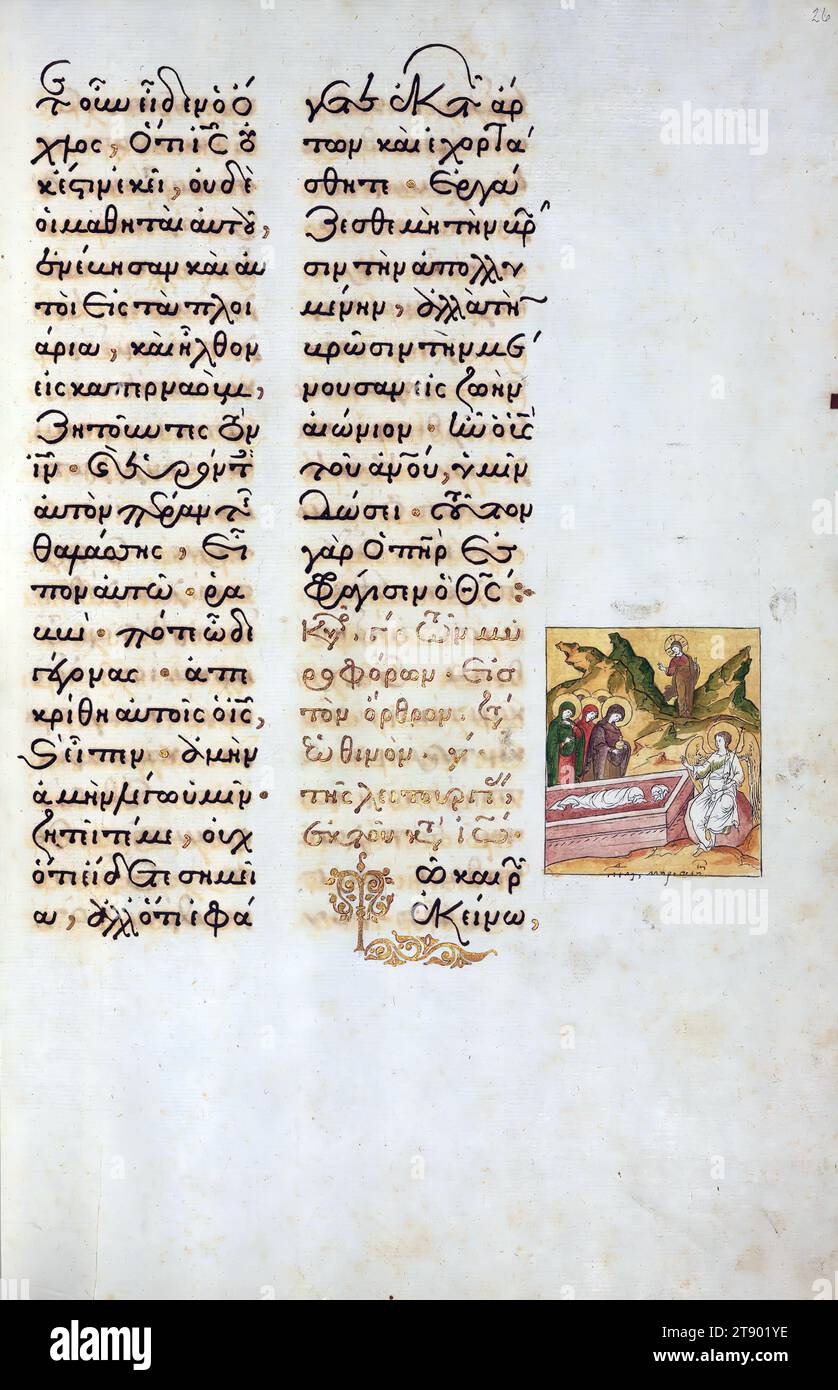 26
τ οὖν εἶδεν ὁ ὄ
χλος, Ὅτι ΙΣ οὐ
κ ἔστιν ἐκεῖ, οὐδὲ
οἱ μαθηταὶ αὐτοῦ,
ἀνέβησαν καὶ αὐ
τοὶ Εἰς τὰ πλοι
άρια, καὶ ἦλθον
εἰς καπερναοὺμ,
Ζητοῦντες τὸν
ἰν · εὑρόντ
αὐτὸν πέραν τῆς
θαλάσσης, Εἶ
πον αὐτῶ · ρα
ββὶ · πότε ὧδε
γέγονας · ἀπε
κρίθη αὐτοῖς ὁ ἰς,
καὶ εἶπεν · ἀμὴν
ἀμὴν λέγω ὑμῖν ·
ζητεῖτέ με, οὐχ
ὅτι εἴδετε σημεῖ
α, ἀλλ ὅτι ἐφά
γετε ἐκ τ ἄρ
των καὶ ἐχορτά
σθητε · Ἐργά
Ζεσθε μὴ τὴν βρῶ
σιν τὴν ἀπολλυ
μένην, ἀλλὰ τὴν
βρῶσιν τὴν μέ
νουσαν εἰς ζωὴν
αἰώνιον · ἣν ὁ ὑς
τοῦ ἀνου, ὑμῖν
Δώσει · τοῦτον
γὰρ Ὁ πηρ Ἐσ
Φράγισεν ὁ ΘΣ
Κυ, γ τῶν μυ
ροφόρων · Εἰς
τὸν ὄρθρον ·
Ἑωθινὸν · γ ·
τῆς λειτουργ,
ἐκ τοῦ κατ ἰω ·
Τῶ καιρ
Ἐκείνω,
alamy
alamy
Image ID: 2T901YE
www.alamy.com